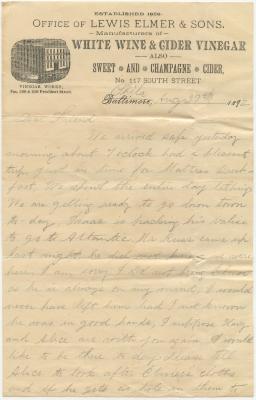 ESTABLISHED 1856
OFFICE OF LEWIS ELMER & SONS.
Manufacturers of
WHITE WINE & CIDER VINEGAR
—ALSO—
SWEET AND CHAMPAGNE CIDER,
No. 157 SOUTH STREET
VINEGAR WORKS,
President Street.
Baltimore, Aug 189
Dear Friend
We arrived safe yesterday
morning about 7 oclock had a pleasant
trip, just in time for
We slept the entire day
We are getting ready to go down town
to-day, is packing his valise
to go to Atlantic Mr came up
last night he did not
here. I am sorry I did not bring
as he is always on my mind, I would
never have left him had I not known
he was in good hands, I suppose
and Alice are with you again. I would
like to be there to day Please tell
Alice to look after cloths
and if he gets a hole in them to